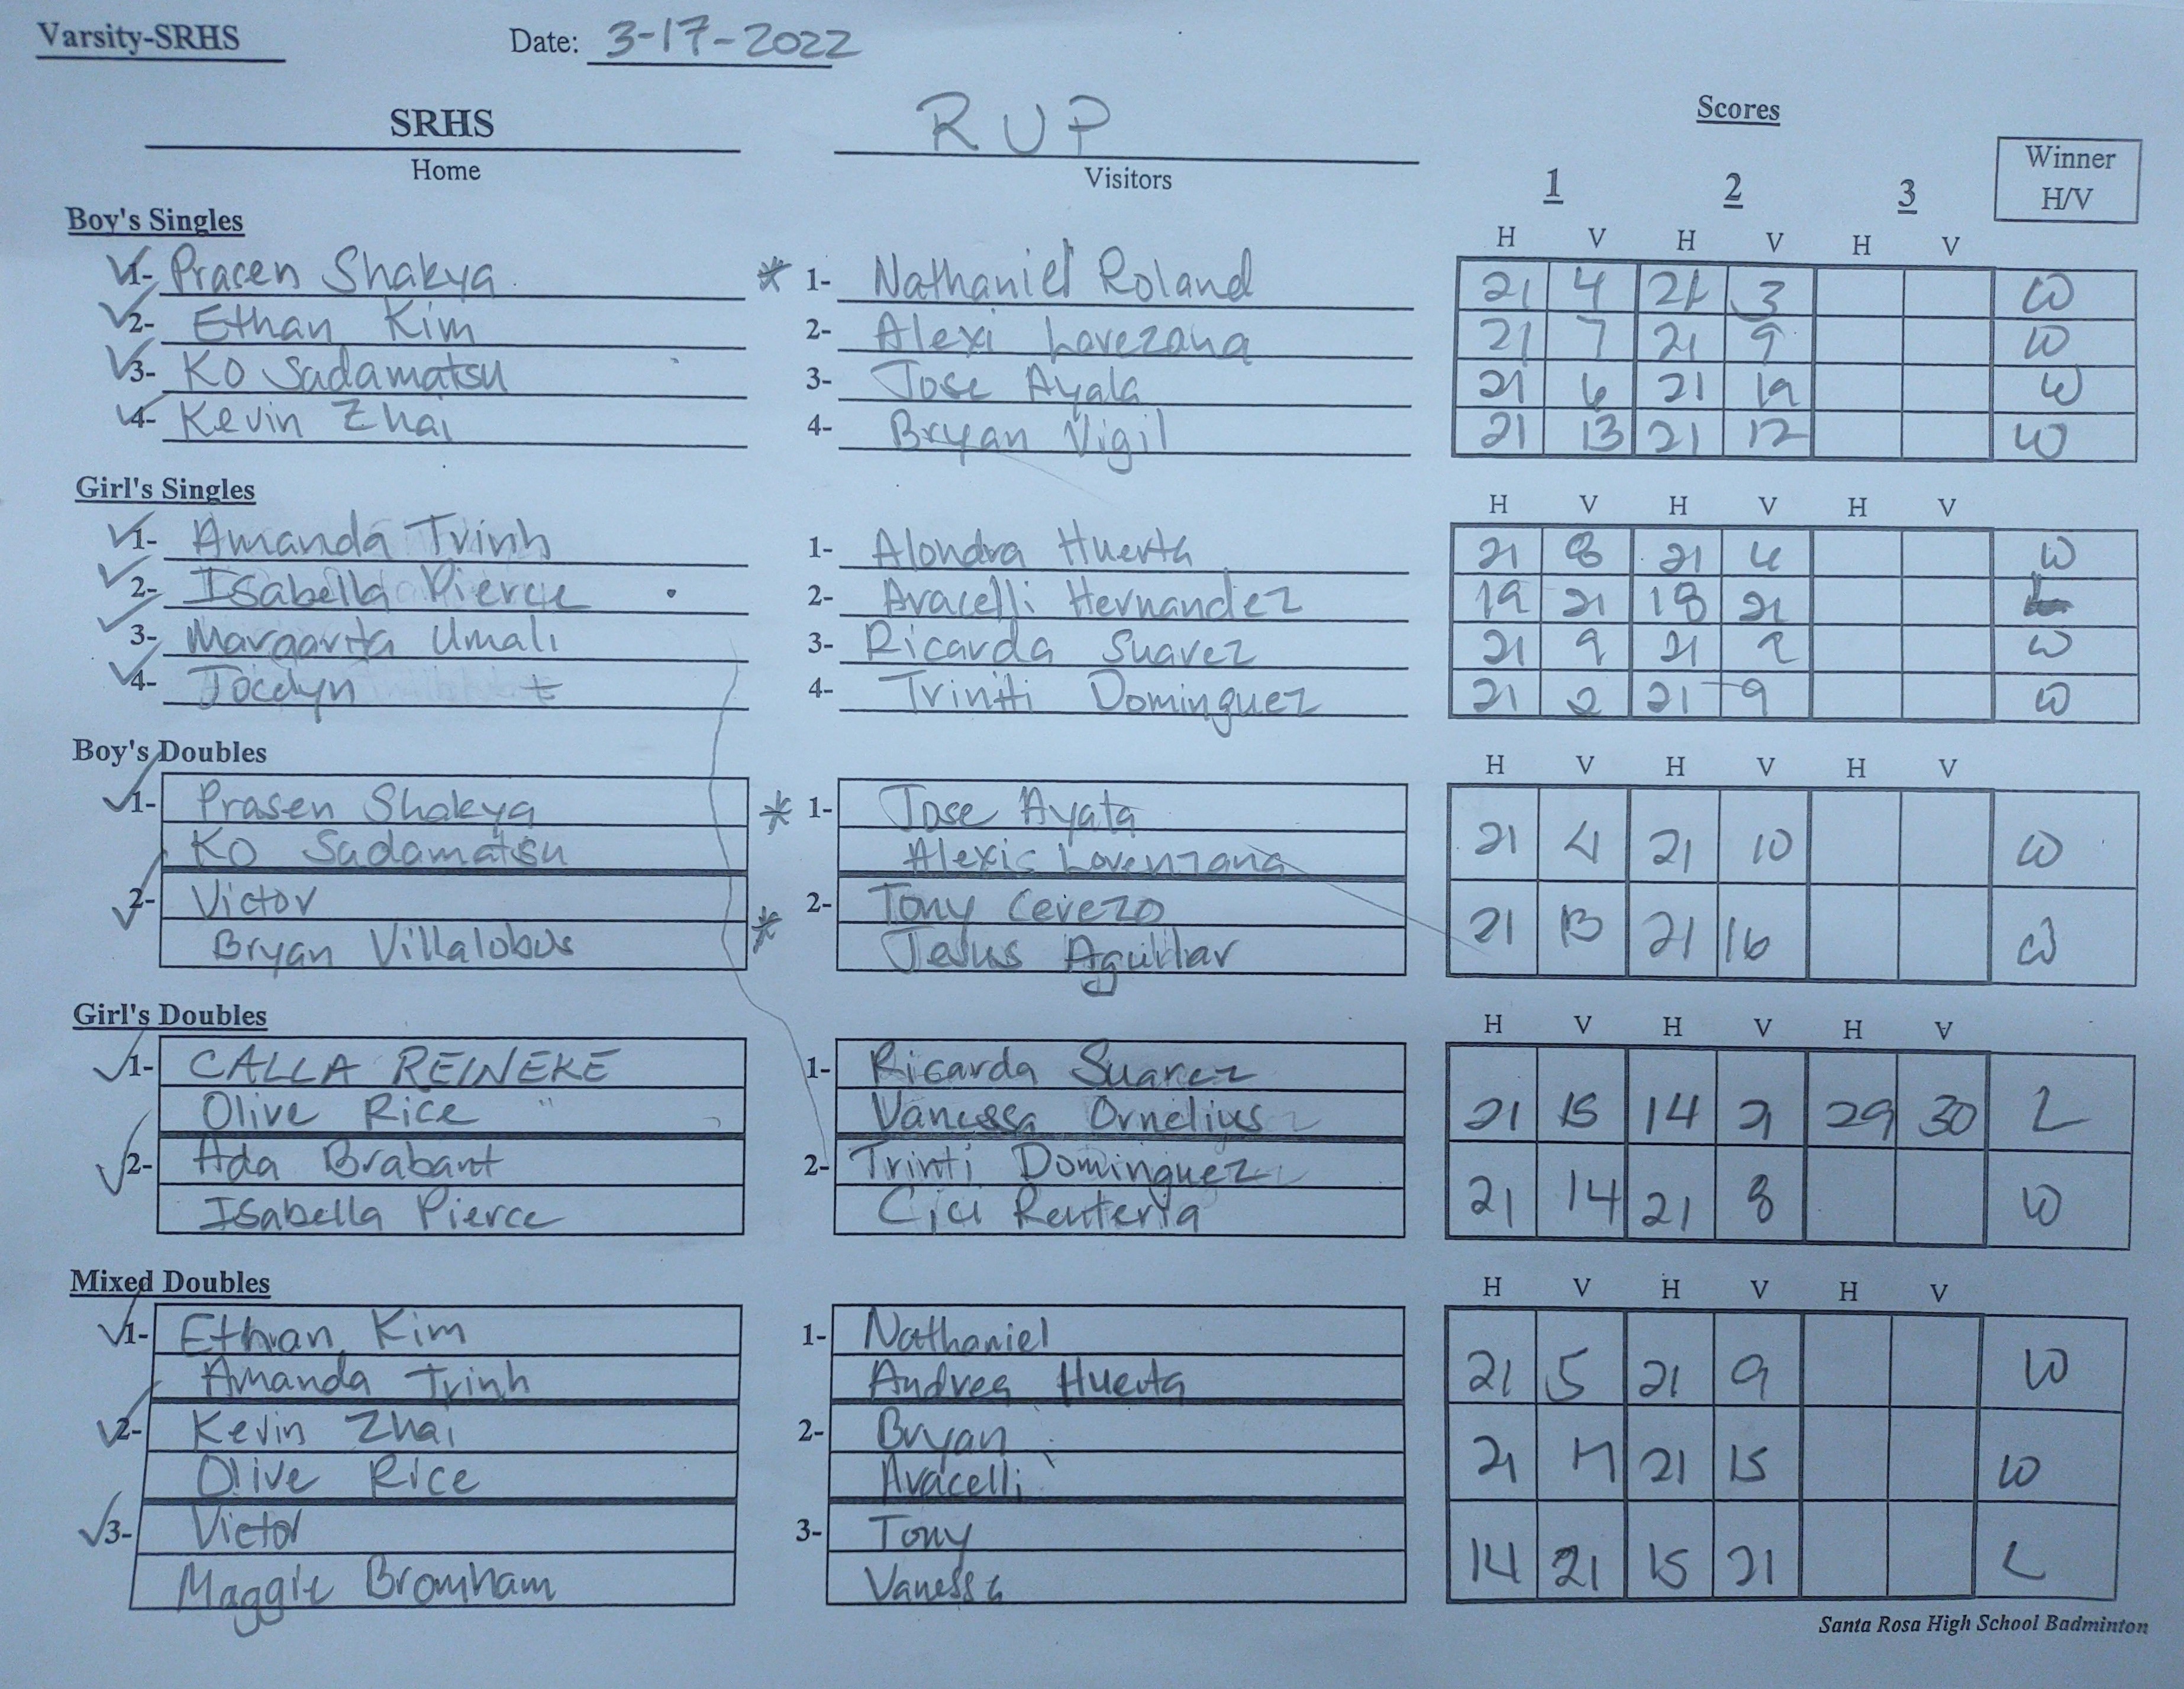 Varsity-SRHS Date: 3-17-2022
SRHS RUP Scores
Home Visitors 1 2 3 Winner H/V
Boy's Singles H V H V H V
1- Prasen Shakya * 1- Nathaniel Roland 21 4 21 3 W
2- Ethan Kim 2- Alexi Lorezana 21 7 21 9 W
3- Ko Sadamatsu 3- Jose Ayala 21 6 21 19 W
4- Kevin Zhai 4- Bryan Vigil 21 13 21 12 W
Girl's Singles H V H V H V
1- Amanda Trinh 1- Alondra Huerta 21 8 21 4 W
2- Isabella Pierce 2- Aracelli Hernandez 19 21 18 21 L
3- Margarita Umali 3- Ricarda Suarez 21 9 21 2 W
4- Jocelyn t 4- Triniti Dominguez 21 2 21 9 W
Boy's Doubles H V H V H V
1- Prasen Shakya * 1- Jose Ayala 21 4 21 10 W
Ko Sadamatsu Alexis Lorenzana
2- Victor * 2- Tony Cerezo 21 13 21 16 W
Bryan Villalobos Jesus Aguilar
Girl's Doubles H V H V H V
1- CALLA REINEKE 1- Ricarda Suarez 21 15 14 21 29 30 L
Olive Rice Vanessa Ornelius
2- Ada Brabant 2- Trinti Dominguez 21 14 21 8 W
Isabella Pierce Cici Renteria
Mixed Doubles H V H V H V
1- Ethan Kim 1- Nathaniel 21 5 21 9 W
Amanda Trinh Andrea Huerta
2- Kevin Zhai 2- Bryan 21 17 21 15 W
Olive Rice Aracelli
3- Victor 3- Tony 14 21 15 21 L
Maggie Bromham Vanessa
Santa Rosa High School Badminton